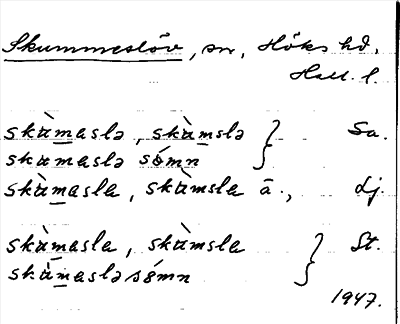 Skummeslöv, sn, Höks hd.
Hall. l.
skùmaslə, skùmslə } Sa.
skùmaslə sómn
skùmasla, skùmsla ā., Lj.
skùmasla, skùmsla } St.
skùmaslə sómn
1947.